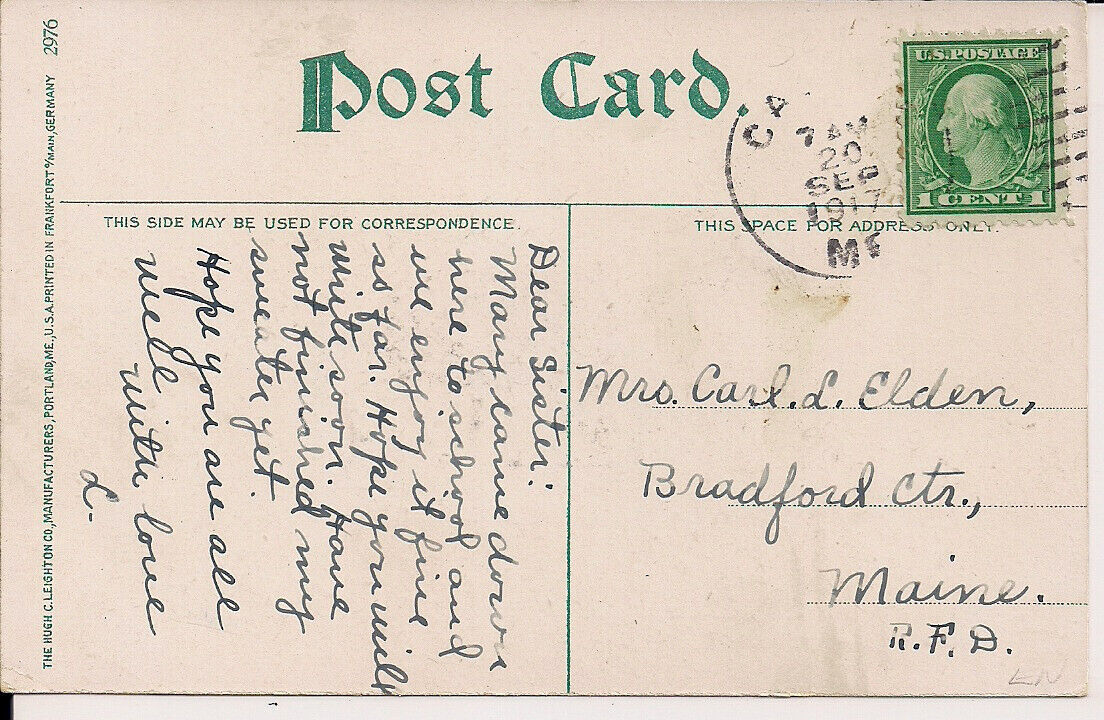 Post Card.
THIS SIDE MAY BE USED FOR CORRESPONDENCE.
THIS SPACE FOR ADDRESS ONLY.
U.S. POSTAGE
1 CENT 1
7 AM
20
SEP
1917
ME
THE HUGH C. LEIGHTON CO., MANUFACTURERS, PORTLAND, ME., U.S.A. PRINTED IN FRANKFORT o/MAIN, GERMANY 2976
Dear Sister:
Mary came down
here to school and
we enjoy it fine
so far. Hope you will
write soon. Have
not finished my
sweater yet.
Hope you are all
well
With love
L-
Mrs. Carl. L. Elden,
Bradford Ctr.,
Maine.
R.F.D.
EN